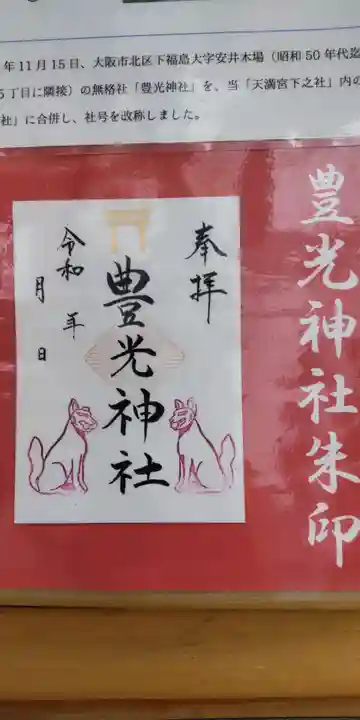 年11月15日、大阪市北区下福島大字安井木場（昭和50年代迄
5丁目に隣接）の無格社「豊光神社」を、当「天満宮下之社」内の
社」に合併し、社号を改称しました。
豊光神社朱印
奉拝
豊光神社
令和 年
月 日